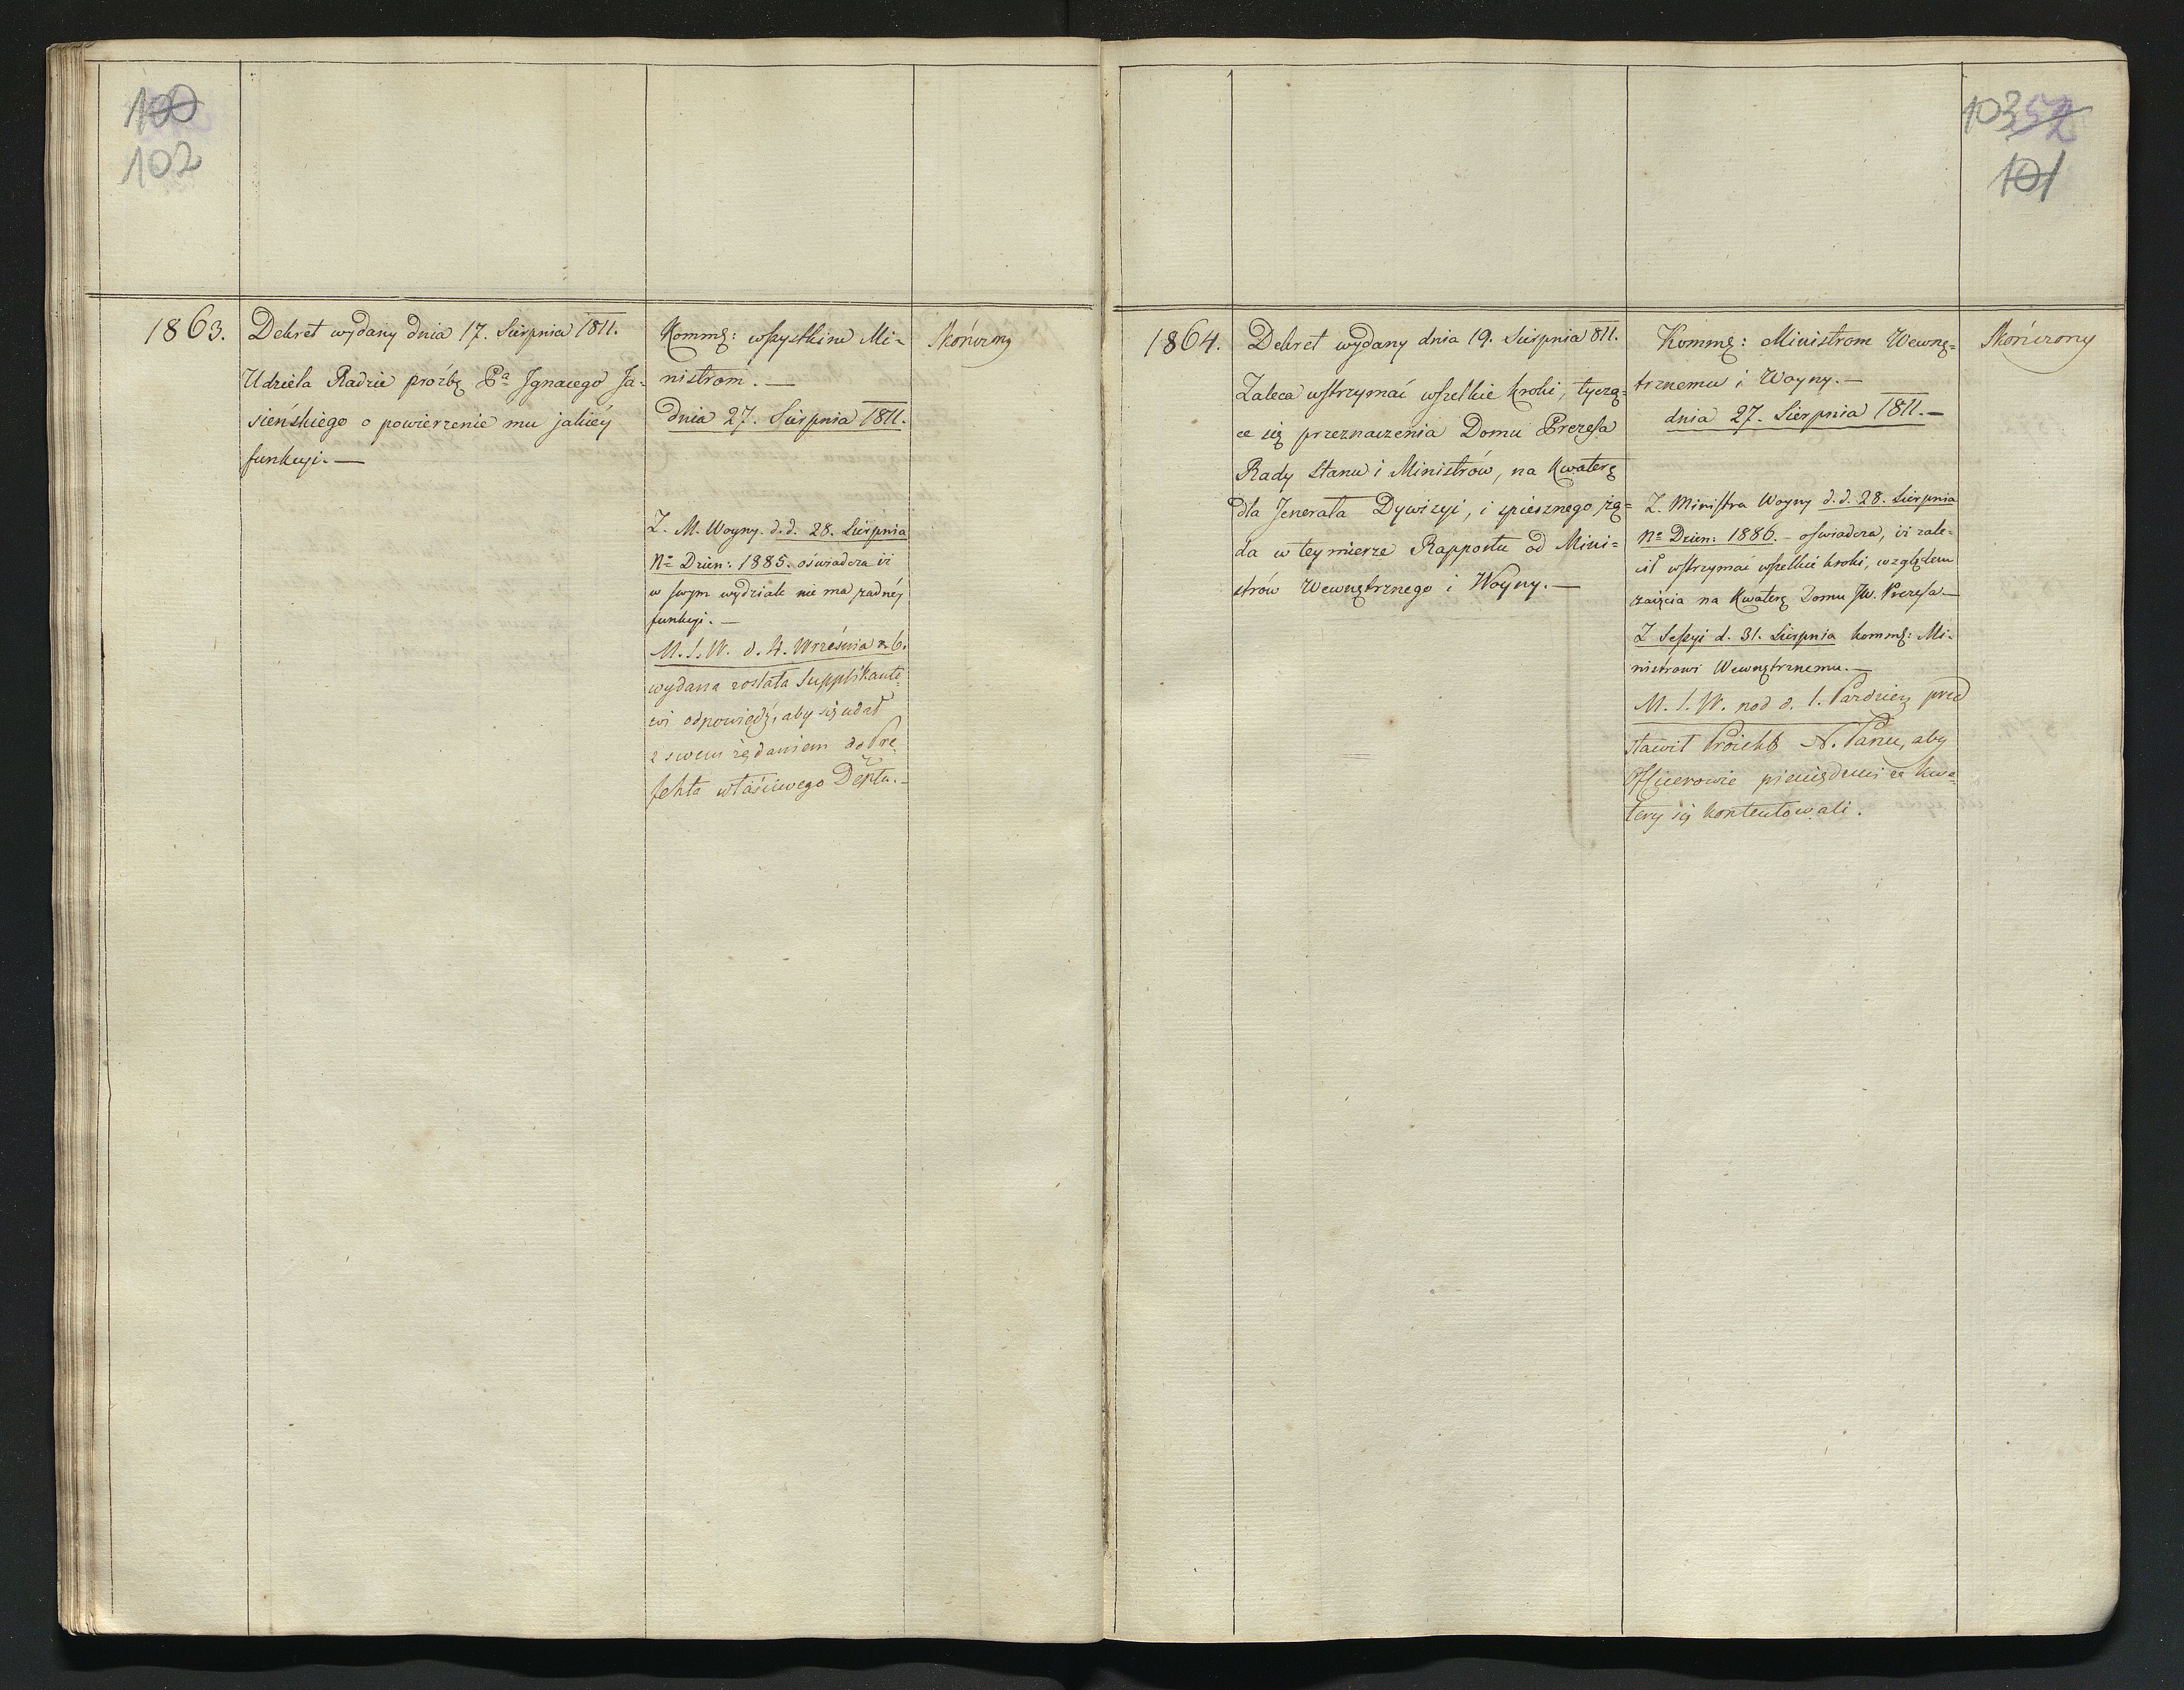 100
102
1863.
Dekret wydany dnia 17. Sierpnia 1811.
Udziela Radzie prośbę Pa Ignacego Ja-
sieńskiego o powierzenie mu jakiéy
funkcyi. —
Kommę: wszystkim Mi-
nistrom. —
dnia 27. Sierpnia 1811.
Z. M. Woyny. d. d. 28. Sierpnia
No Dzien: 1885. oświadcza iż
w swym wydziale nie ma żadnéy
funkcyi. —
M. S. W. d. 4. Września
wydana została Supplikanto-
wi odpowiedź, aby się udał
z swem żądaniem do Pre-
fekta właściwego Deptu. —
Skończony
103 52
101
1864.
Dekret wydany dnia 19. Sierpnia 811.
Zaleca wstrzymać wszelkie kroki, tyczą-
ce się przeznaczenia Domu Prezesa
Rady Stanu i Ministrów, na Kwaterę
dla Jenerała Dywizyi, i spiesznego żą-
da w tey mierze Rapportu od Mini-
strów Wewnętrznego i Woyny. —
Kommę: Ministrom Wewnę-
trznemu i Woyny. —
dnia 27. Sierpnia 1811. —
Z. Ministra Woyny d. d. 28. Sierpnia
No Dzien: 1886. - oświadcza, iż zale-
cił wstrzymać wszelkie kroki, względem
zajęcia na Kwaterę Domu JW. Prezesa —
Z Sessyi d. 31. Sierpnia kommę: Mi-
nistrowi Wewnętrznemu. —
M. S. W. pod d. 1. Paźdźier: przed
stawił Proiekt N. Panu, aby
Officerowie pieniędzmi za kwa-
tery się kontentowali.
Skończony